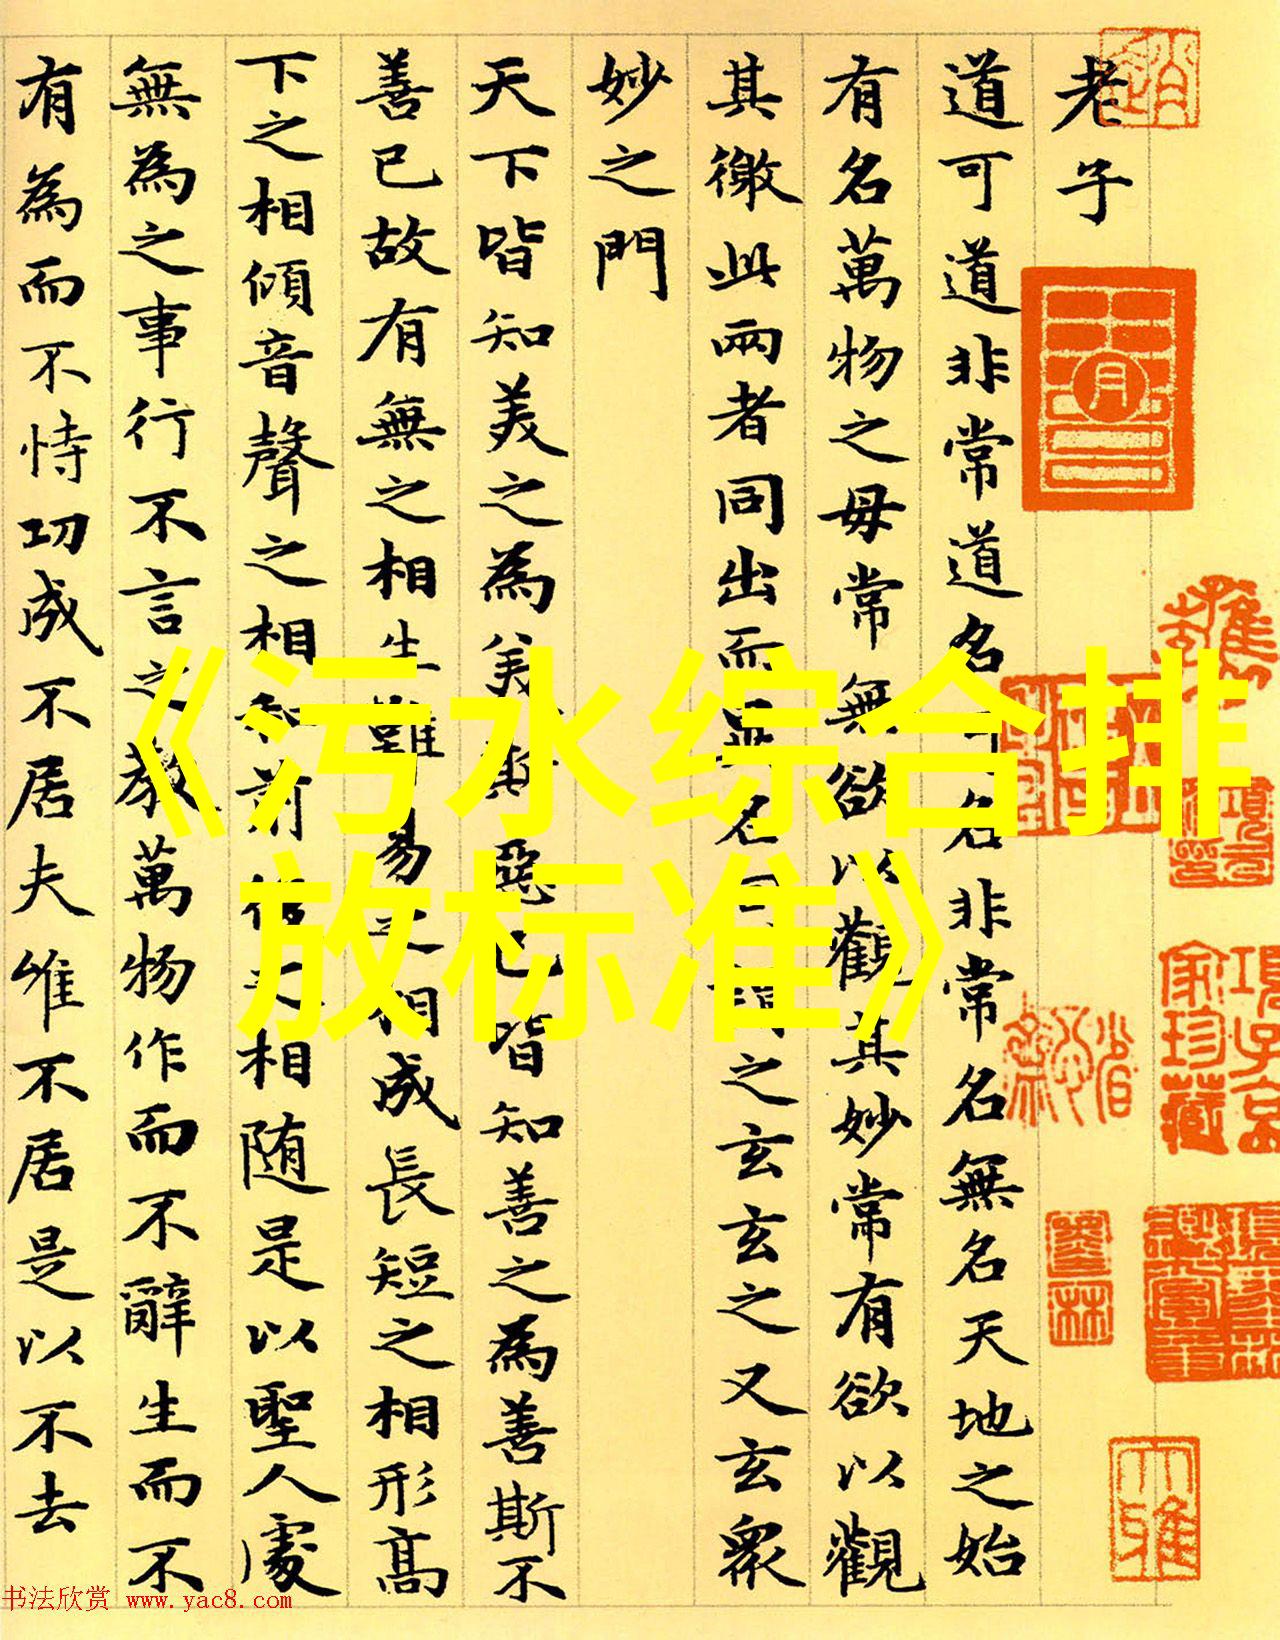 老子
道可道非常道名可名非常名無名天地之始
有名萬物之母常無欲以觀其妙常有欲以觀
其徼此兩者同出而異名同謂之玄玄之又玄衆
妙之門
天下皆知美之為美斯惡已皆知善之為善斯不
善已故有無之相生難易之相成長短之相形高
下之相傾音聲之相和前後之相随是以聖人處
無為之事行不言之教萬物作而不辭生而不
有為而不恃功成不居夫唯不居是以不去
《污水综合排
放标准》
項子京
家珍藏
大雅
书法欣赏 www.yac8.com